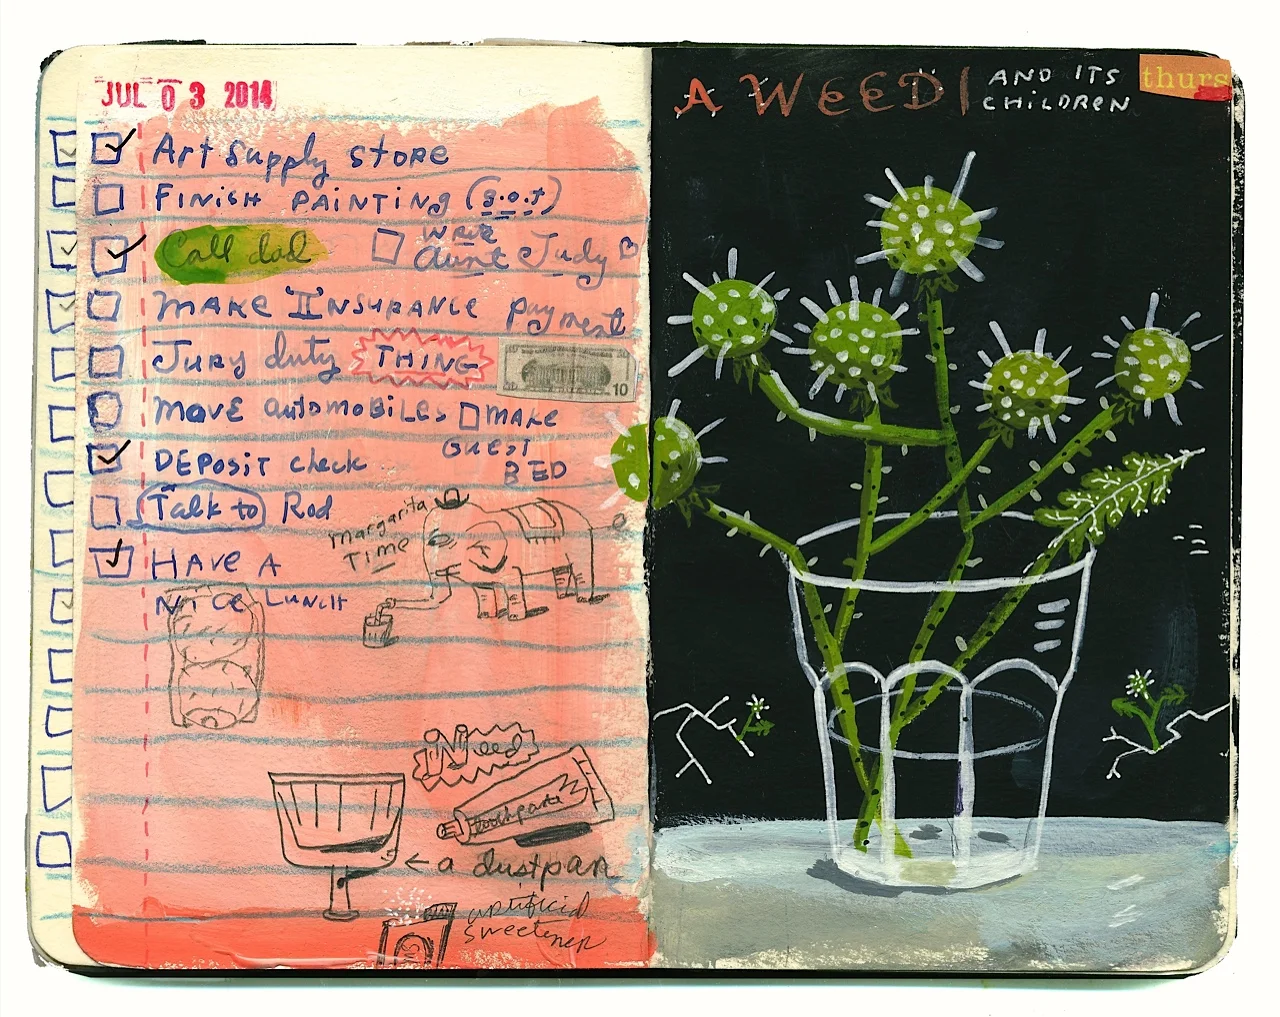 JUL 03 2014
Art Supply store
FINISH PAINTING (g.o.t)
Call dad
WRITE
Aunt Judy B
MAKE IINSURANCE payment
Jury duty THING
10
MOVE AUTOMOBILES
MAKE
GUEST
BED
DEPOSIT check
Talk to Rod
Margarita
TIME
HAVE A
NICE LUNCH
I Need
toothpaste
← a dustpan
artificial
sweetener
A WEED
AND ITS
CHILDREN
thurs